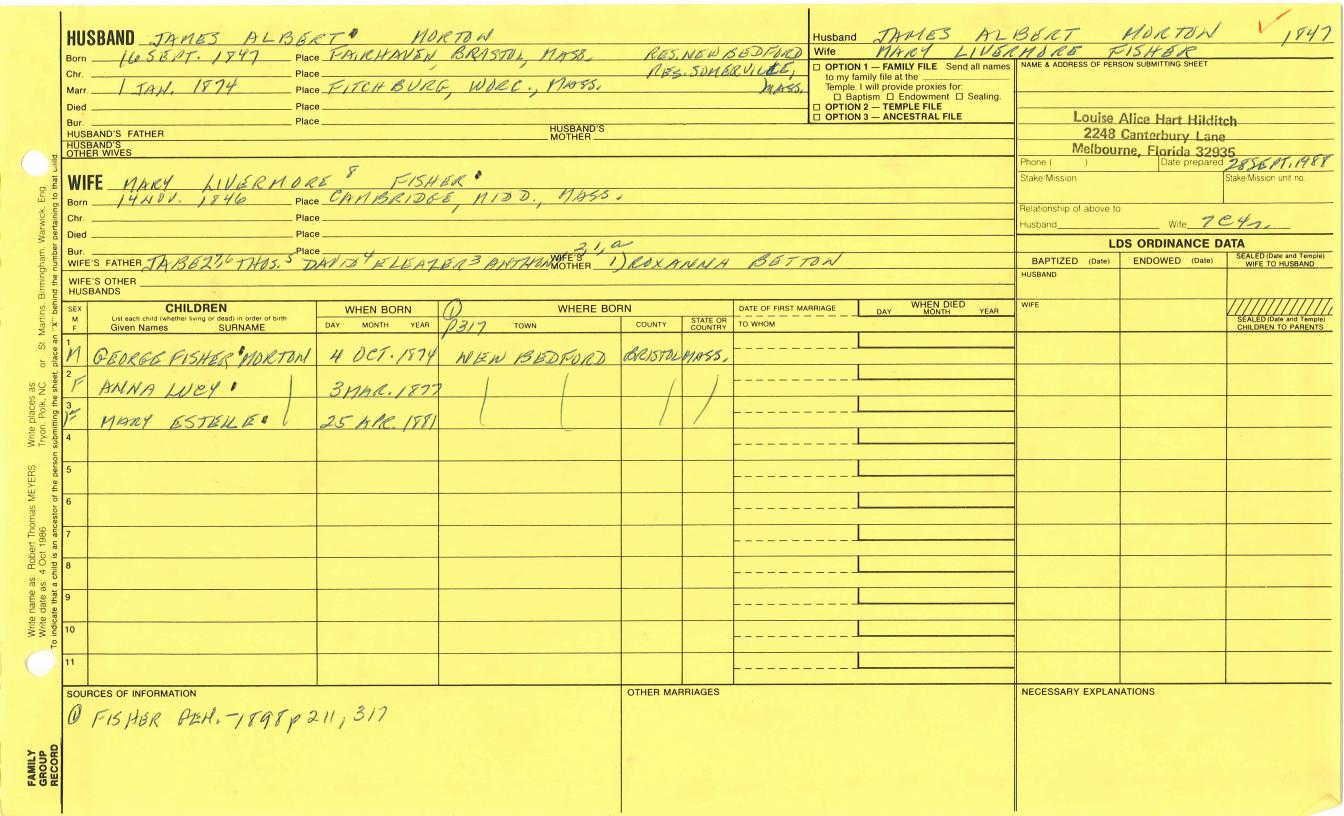 HUSBAND JAMES ALBERT MORTON
Born 16 SEPT. 1847 Place FAIRHAVEN, BRISTOL, MASS. RES. NEW BEDFORD
Chr. Place RES. SOMERVILLE,
Marr. 1 JAN. 1874 Place FITCHBURG, WORC., MASS. MASS.
Died Place
Bur. Place
HUSBAND'S FATHER HUSBAND'S MOTHER
HUSBAND'S OTHER WIVES
Husband JAMES ALBERT MORTON 1847
Wife MARY LIVERMORE FISHER
☐ OPTION 1 — FAMILY FILE Send all names
to my family file at the
Temple. I will provide proxies for:
☐ Baptism ☐ Endowment ☐ Sealing.
☐ OPTION 2 — TEMPLE FILE
☐ OPTION 3 — ANCESTRAL FILE
NAME & ADDRESS OF PERSON SUBMITTING SHEET
Louise Alice Hart Hilditch
2248 Canterbury Lane
Melbourne, Florida 32935
Phone ( ) Date prepared 28 SEPT. 1988
Stake/Mission Stake/Mission unit no.
Relationship of above to
Husband Wife 7C4r.
WIFE MARY LIVERMORE 8 FISHER
Born 14 NOV. 1846 Place CAMBRIDGE, MIDD., MASS.
Chr. Place
Died Place
Bur. Place
WIFE'S FATHER JABEZ 7,6 THOS. 5 DAVID 4 ELEAZER 3 ANTHONY 2,1,a WIFE'S MOTHER 1) ROXANNA BETTON
WIFE'S OTHER HUSBANDS
LDS ORDINANCE DATA
BAPTIZED (Date) ENDOWED (Date) SEALED (Date and Temple) WIFE TO HUSBAND
HUSBAND
WIFE
SEALED (Date and Temple) CHILDREN TO PARENTS
SEX M F
CHILDREN
List each child (whether living or dead) in order of birth
Given Names SURNAME
WHEN BORN
DAY MONTH YEAR
① P317
WHERE BORN
TOWN COUNTY STATE OR COUNTRY
DATE OF FIRST MARRIAGE
TO WHOM
WHEN DIED
DAY MONTH YEAR
1 M GEORGE FISHER MORTON 4 OCT. 1874 NEW BEDFORD BRISTOL MASS.
2 F ANNA LUCY 3 MAR. 1877
3 F MARY ESTELLE 25 APR. 1881
4
5
6
7
8
9
10
11
SOURCES OF INFORMATION
① FISHER GEN. -1898 p 211, 317
OTHER MARRIAGES
NECESSARY EXPLANATIONS
Write name as: Robert Thomas MEYERS Write places as: Tryon, Polk, NC or St. Martins, Birmingham, Warwick, Eng.
Write date as: 4 Oct 1986
To indicate that a child is an ancestor of the person submitting the sheet, place an "X" behind the number pertaining to that child.
FAMILY
GROUP
RECORD